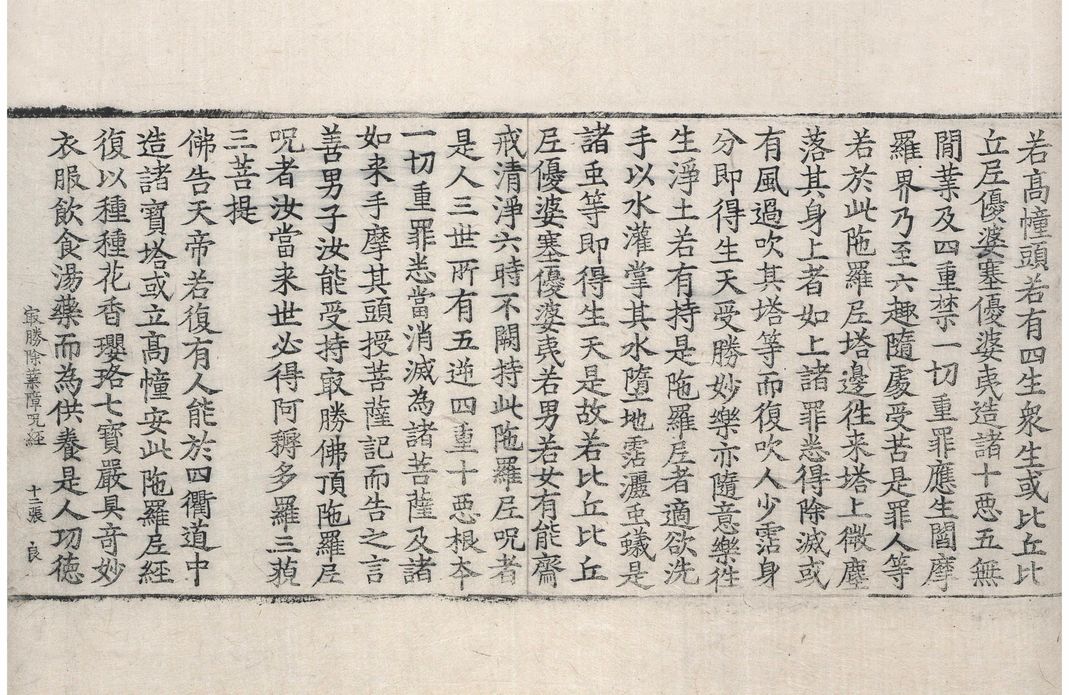 若髙幢頭若有四生衆生或比丘比
丘尼優婆塞優婆夷造諸十惡五無
間業及四重禁一切重罪應生閻摩
羅界乃至六趣隨處受苦是罪人等
若於此陁羅尼塔邊往来塔上微塵
落其身上者如上諸罪悉得除滅或
有風過吹其塔等而復吹人少霑身
分即得生天受勝妙樂亦隨意樂往
生淨土若有持是陁羅尼者適欲洗
手以水灌掌其水墮地霑灑䖝蟻是
諸䖝等即得生天是故若比丘比丘
尼優婆塞優婆夷若男若女有能齋
戒清淨六時不闕持此陁羅尼呪者
是人三世所有五逆四重十惡根本
一切重罪悉當消滅為諸菩薩及諸
如来手摩其頭授菩薩記而告之言
善男子汝能受持㝡勝佛頂陁羅尼
呪者汝當来世必得阿耨多羅三藐
三菩提
佛告天帝若復有人能於四衢道中
造諸寶塔或立髙幢安此陁羅尼經
復以種種花香瓔珞七寶嚴具竒妙
衣服飲食湯藥而為供養是人功徳
㝡勝除業障呪經 十三張 良